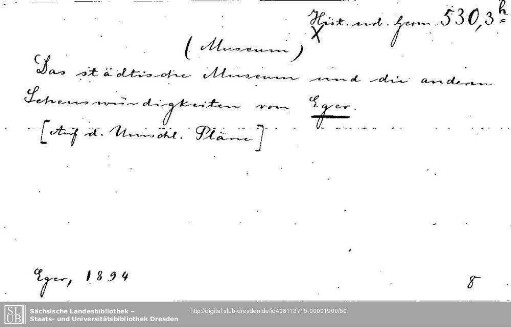 Hist. urb. Germ. 530,3ʰ
(Museum)
Das städtische Museum und die anderen
Sehenswürdigkeiten von Eger.
[Auf d. Umschl. Pläne]
Eger, 1894
8
SLUB
Sächsische Landesbibliothek –
Staats- und Universitätsbibliothek Dresden